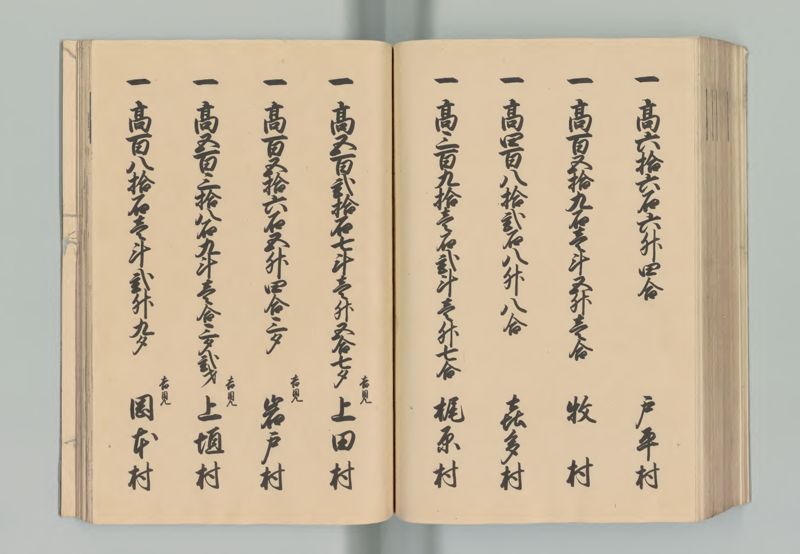 一 高六拾六石六升四合 戸平村
一 高百五拾九石壱斗五升壱合 牧村
一 高四百八拾弐石八升八合 喜多村
一 高三百九拾壱石弐斗壱升七合 梶原村
一 高五百弐拾石七斗壱升五合七夕 吉見 上田村
一 高百五拾六石五升四合三夕 吉見 岩戸村
一 高五百三拾八石九斗壱合三夕弐才 吉見 上垣村
一 高百八拾石壱斗弐升九夕 吉見 岡本村